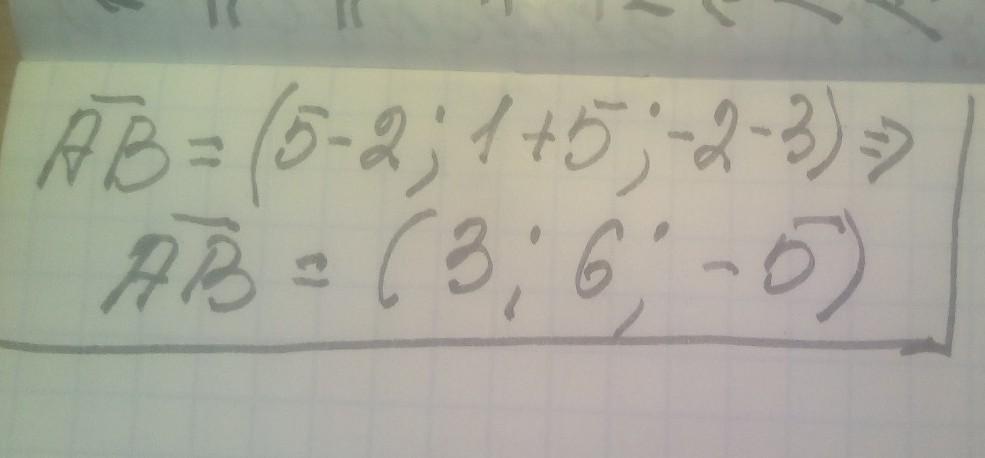 AB = (5-2; 1+5; -2-3) ⇒
AB = (3; 6; -5)